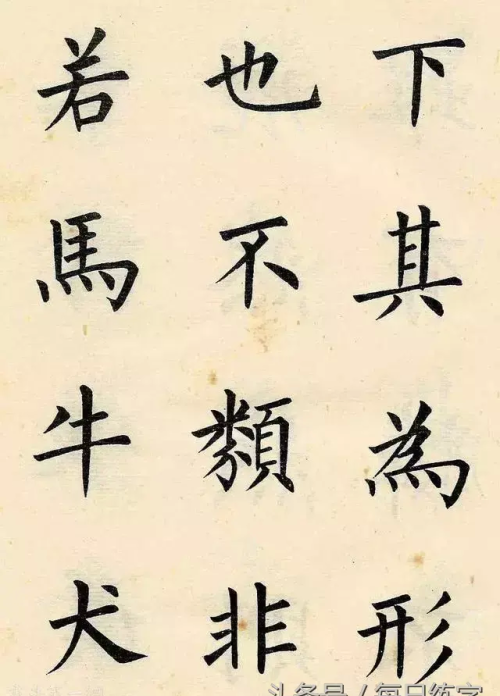 下其為形
也不類非
若馬牛犬
头条号/每日练字